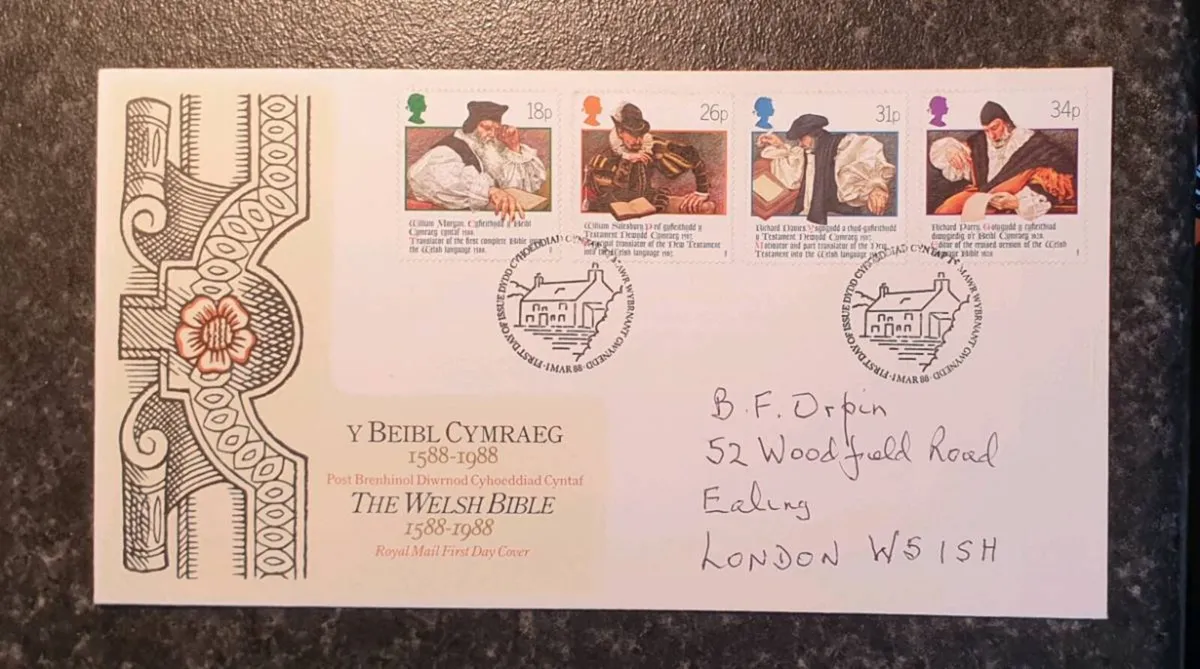 18p
William Morgan. Cyfieithydd y Beibl
Cymraeg cyntaf 1588.
Translator of the first complete Bible
the Welsh language 1588.
26p
William Salesbury. Prif gyfieithydd y
Testament Newydd Cymraeg 1567.
translator of the New Testament
into the Welsh language 1567.
31p
Richard Davies. Ysgogydd a chyd-gyfieithydd
y Testament Newydd Cymraeg 1567.
Motivator and part translator of the New
Testament into the Welsh language
34p
Richard Parry. Golygydd y cyfieithiad
diwygiedig o'r Beibl Cymraeg 1620.
Editor of the revised version of the Welsh
Bible 1620.
FIRST DAY OF ISSUE DYDD CYHOEDDIAD CYNTAF MAWR WYBRNANT GWYNEDD
1 MAR 88
FIRST DAY OF ISSUE DYDD CYHOEDDIAD CYNTAF MAWR WYBRNANT GWYNEDD
1 MAR 88
Y BEIBL CYMRAEG
1588-1988
Post Brenhinol Diwrnod Cyhoeddiad Cyntaf
THE WELSH BIBLE
1588-1988
Royal Mail First Day Cover
B. F. Orpin
52 Woodfield Road
Ealing
LONDON W5 1SH